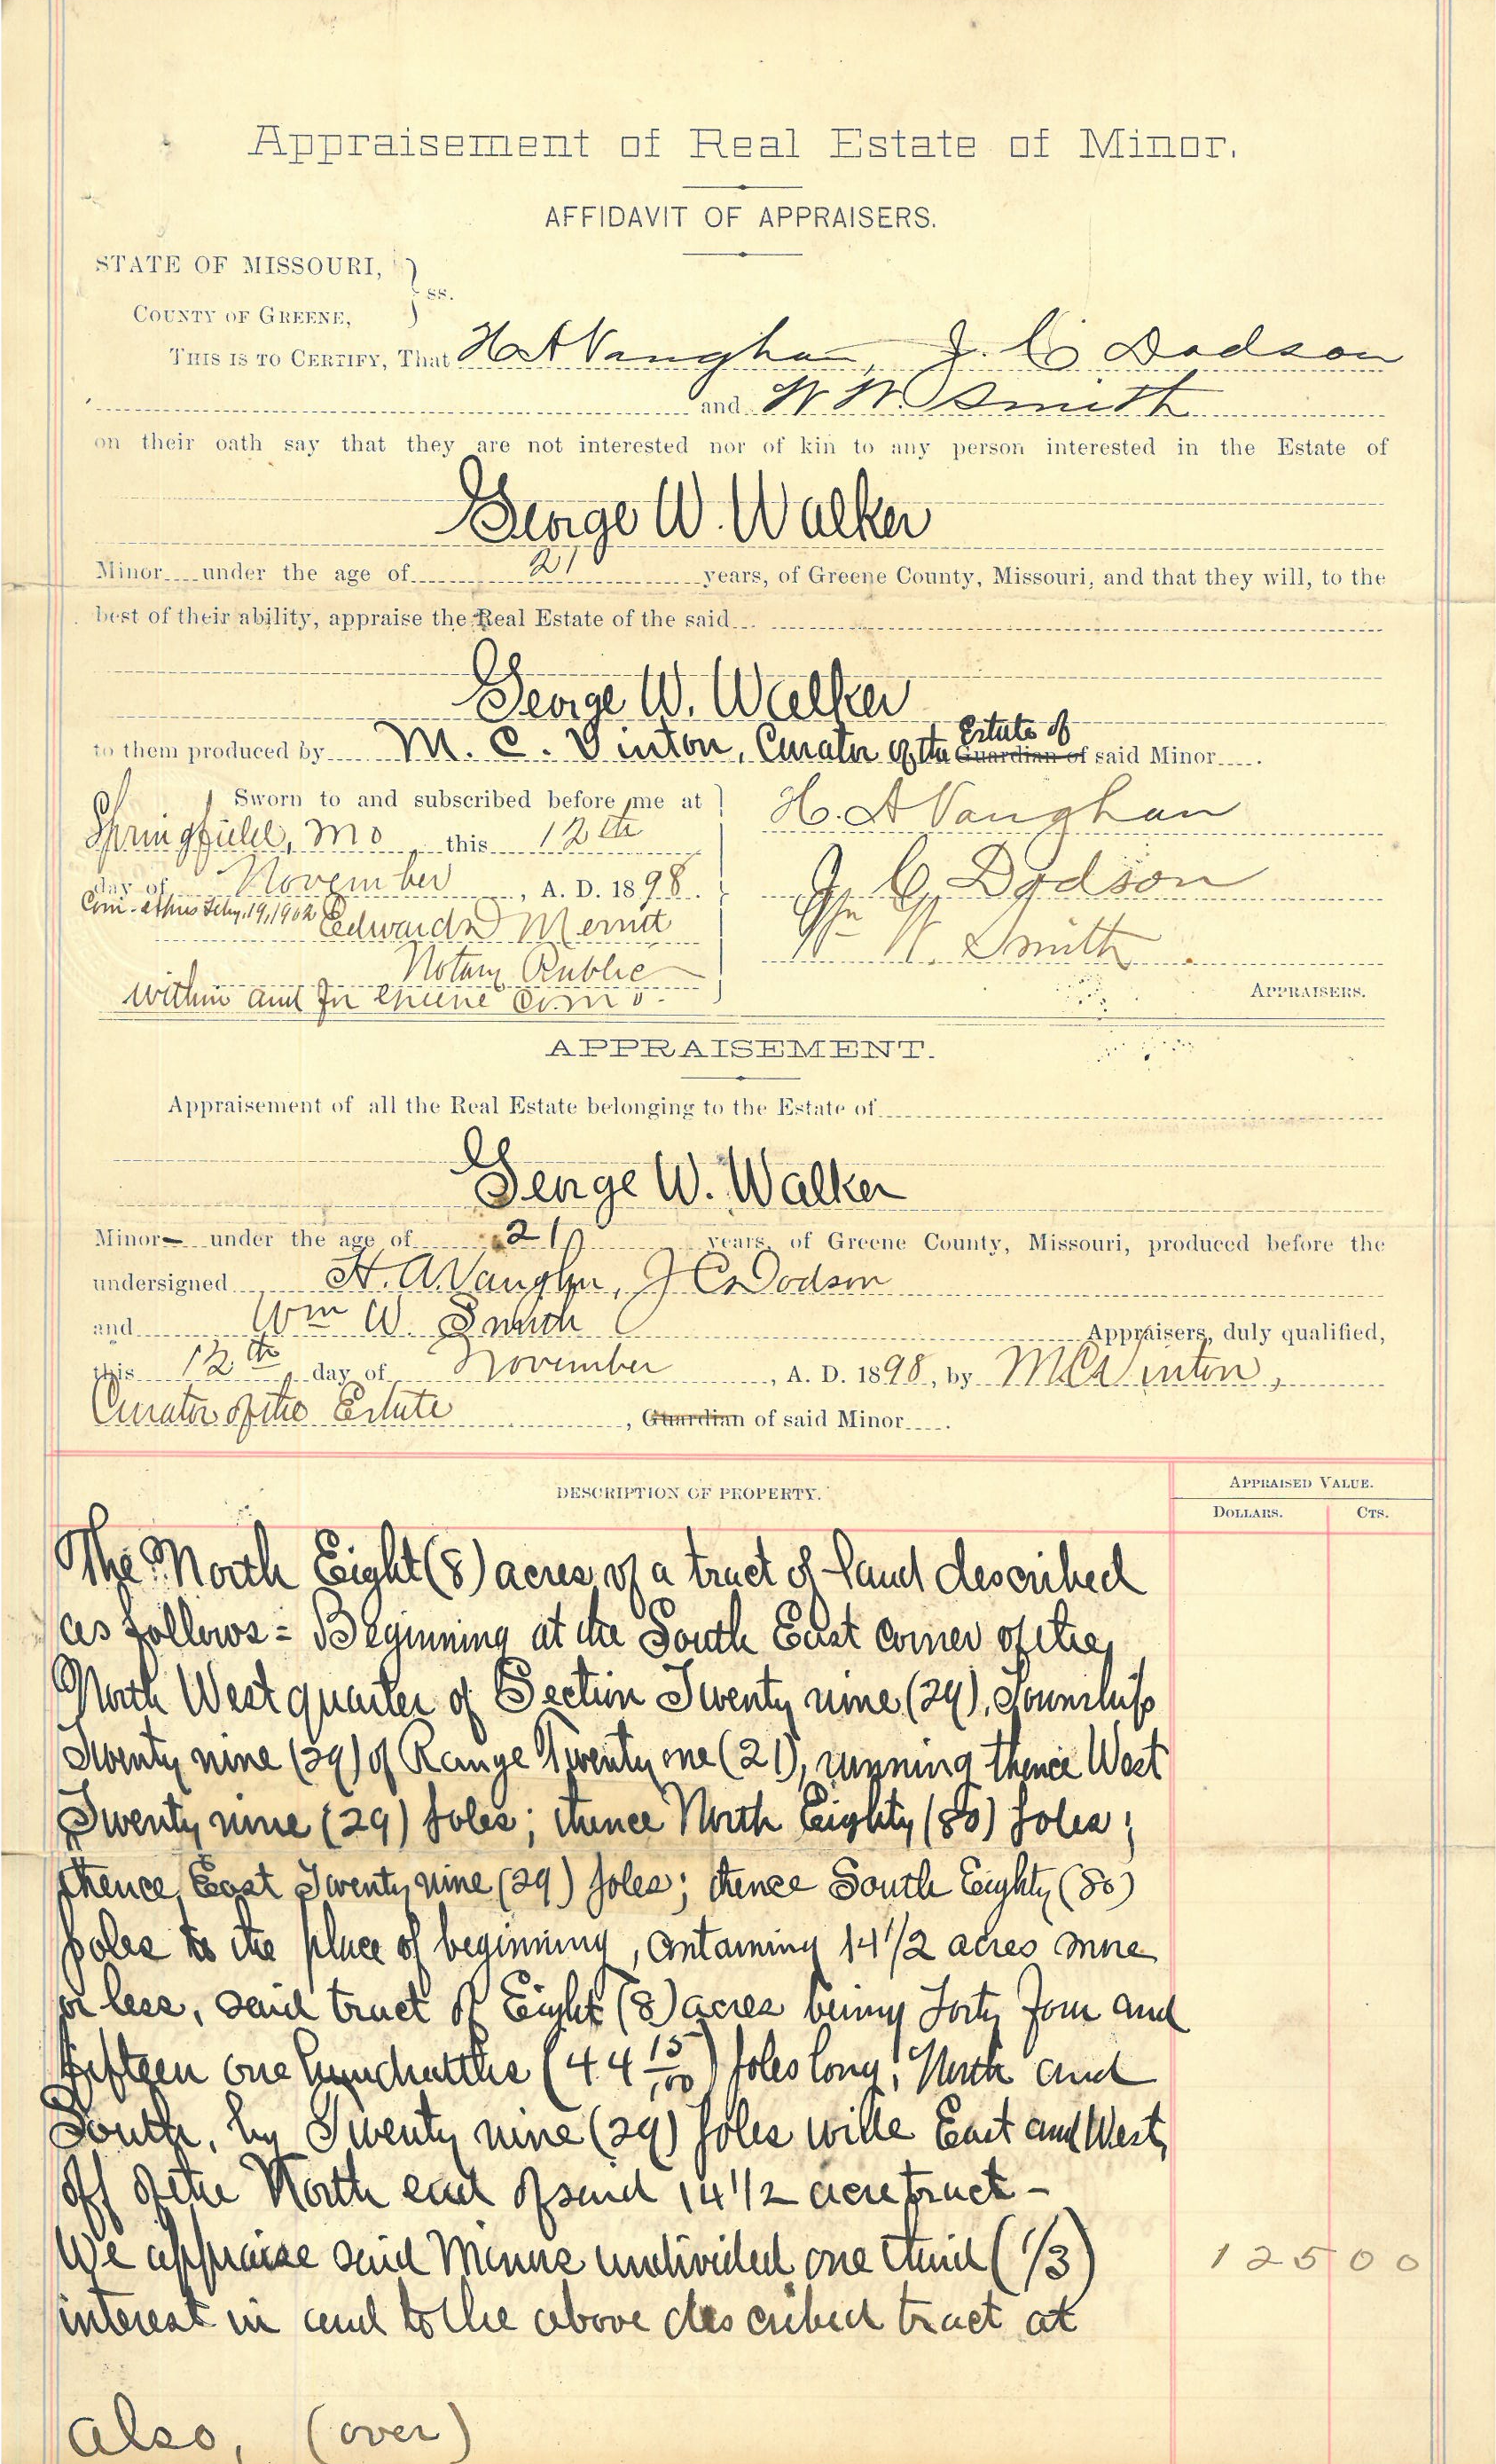 Appraisement of Real Estate of Minor.
AFFIDAVIT OF APPRAISERS.
STATE OF MISSOURI,
ss.
COUNTY OF GREENE,
THIS IS TO CERTIFY, That H A Vaughan, J. C Dodson
and W W. Smith
on their oath say that they are not interested nor of kin to any person interested in the Estate of
George W. Walker
Minor under the age of 21 years, of Greene County, Missouri, and that they will, to the
best of their ability, appraise the Real Estate of the said
George W. Walker
Estate of
to them produced by M. C. Vinton, Curator of the Guardian of said Minor
Sworn to and subscribed before me at
Springfield, Mo this 12th
day of November, A. D. 1898.
Com. expires Feby. 19, 1902 Edward D Merritt
Notary Public
within and for Greene Co. Mo.
H. A Vaughan
J. C. Dodson
Wm W. Smith
APPRAISERS.
APPRAISEMENT.
Appraisement of all the Real Estate belonging to the Estate of
George W. Walker
Minor under the age of 21 years, of Greene County, Missouri, produced before the
undersigned H. A. Vaughn, J C Dodson
and Wm W. Smith Appraisers, duly qualified,
this 12th day of November, A. D. 1898, by M C Vinton,
Curator of the Estate, Guardian of said Minor
DESCRIPTION OF PROPERTY.
APPRAISED VALUE.
DOLLARS. CTS.
The North Eight (8) acres of a tract of land described
as follows = Beginning at the South East corner of the
North West quarter of Section Twenty nine (29), Township
Twenty nine (29) of Range Twenty one (21), running thence West
Twenty nine (29) poles; thence North Eighty (80) poles;
thence East Twenty nine (29) poles; thence South Eighty (80)
poles to the place of beginning, containing 14 1/2 acres more
or less, said tract of Eight (8) acres being Forty Four and
fifteen one hundredths (44 15/100) poles long, North and
South, by Twenty nine (29) poles wide East and West,
off of the North end of said 14 1/2 acre tract -
We appraise said Minors undivided one third (1/3) 125 00
interest in and to the above described tract at
also, (over)